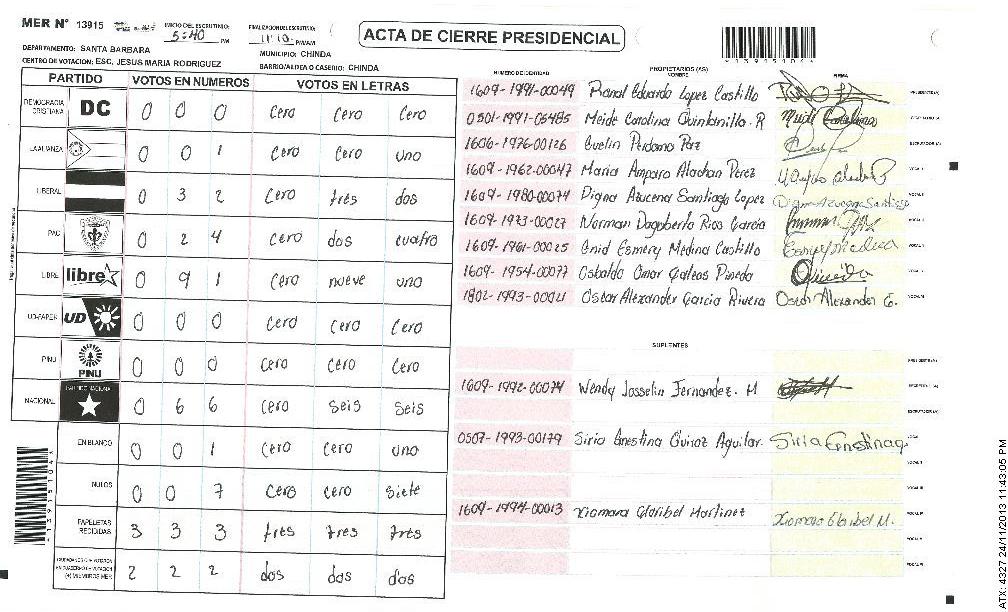 MER N° 13915 INICIO DEL ESCRUTINIO: 5:40 PM FINALIZACION DEL ESCRUTINIO: 11:10 PM/AM
ACTA DE CIERRE PRESIDENCIAL
*13915104*
DEPARTAMENTO: SANTA BARBARA MUNICIPIO: CHINDA
CENTRO DE VOTACION: ESC. JESUS MARIA RODRIGUEZ BARRIO/ALDEA O CASERIO: CHINDA
PARTIDO VOTOS EN NUMEROS VOTOS EN LETRAS
DEMOCRACIA CRISTIANA DC 0 0 0 Cero Cero Cero
LA ALIANZA 0 0 1 Cero Cero uno
LIBERAL 0 3 2 Cero tres dos
PAC 0 2 4 Cero dos cuatro
LIBRE libre 0 9 1 Cero nueve uno
UD-FAPER UD 0 0 0 Cero Cero Cero
PINU PINU 0 0 0 Cero Cero Cero
NACIONAL PARTIDO NACIONAL 0 6 6 Cero Seis Seis
EN BLANCO 0 0 1 Cero Cero uno
NULOS 0 0 7 Cero Cero Siete
PAPELETAS RECIBIDAS 3 3 3 tres tres tres
CIUDADANOS QUE VOTARON EN CUADERNO DE VOTACION (+) MIEMBROS MER 2 2 2 dos dos dos
PROPIETARIOS (AS)
NUMERO DE IDENTIDAD NOMBRE FIRMA
1609-1991-00049 Eduardo Lopez Castillo PRESIDENTE (A)
0501-1991-05485 Meide Carolina Quintanilla. R SECRETARIO (A)
1606-1976-00126 Evelin Perdomo Paz ESCRUTADOR (A)
1609-1962-00047 Maria Amparo Perez VOCAL I
1609-1980-00074 Digna Azucena Santiago Lopez Digna Azucena Santiago VOCAL II
1609-1973-00027 Norman Dagoberto Rios Garcia
1609-1961-00025 Enid Esmery Medina Castillo
1609-1954-00077 Osbaldo Omar Galeas Pineda
1802-1993-00021 Oscar Alexander Garcia Rivera Oscar Alexander G.
SUPLENTES
PRESIDENTE (A)
1609-1992-00074 Wendy Josselin Fernandez. M SECRETARIO (A)
ESCRUTADOR (A)
0507-1993-00179 Siria Ernestina Quiroz Aguilar. Siria Ernestina
1609-1994-00013 Xiomara Claribel Martinez Xiomara Claribel M.
*13915104*
ATX: 4327 24/11/2013 11:43:05 PM